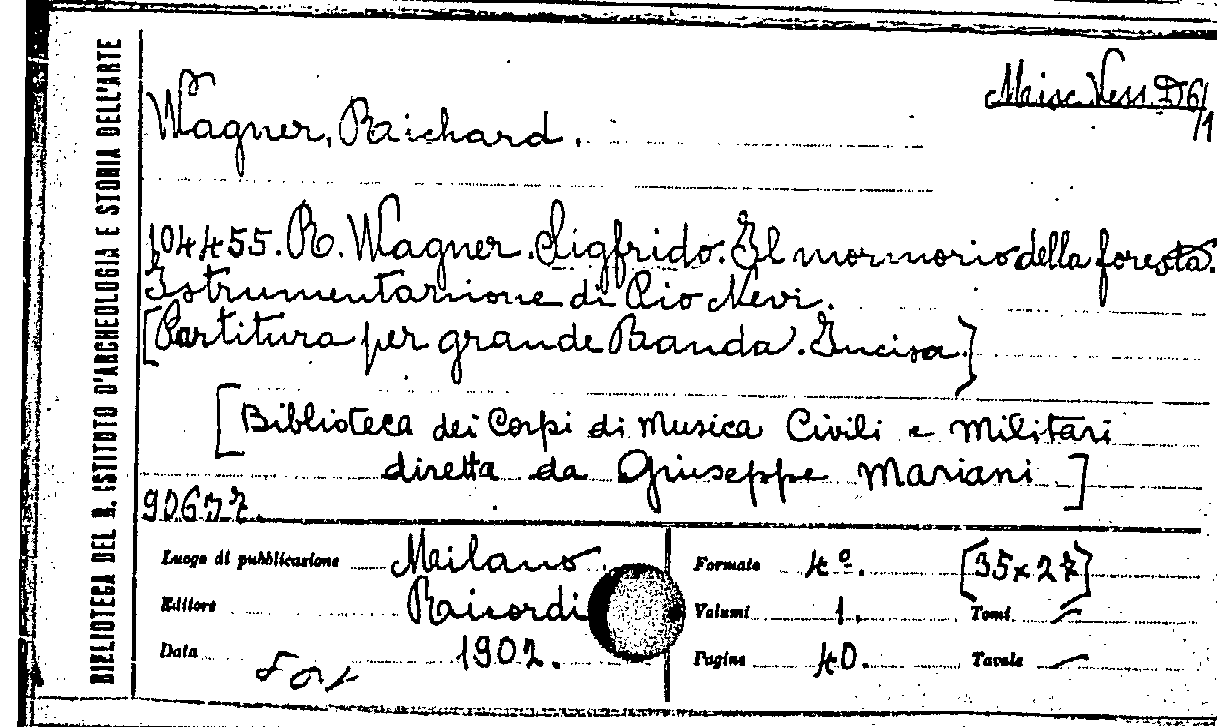 BIBLIOTECA DEL R. ISTITUTO D'ARCHEOLOGIA E STORIA DELL'ARTE
Misc. Vess. D6/1
Wagner, Richard.
104455. R. Wagner. Sigfrido. Il mormorio della foresta.
Istrumentazione di Pio Nevi.
[Partitura per grande Banda. Incisa.]
[Biblioteca dei Corpi di Musica Civili e Militari
diretta da Giuseppe Mariani]
90677.
Luogo di pubblicazione Milano.
Editore Ricordi
Data 1902.
Formato 4º. [35x27]
Volumi 1. Tomi —
Pagine 40. Tavole —